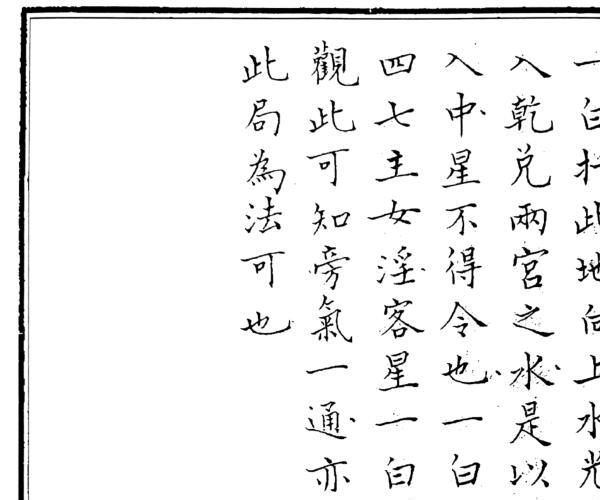 一白於此地向上水光
入乾兌兩宮之水是以
入中星不得令也一白
四七主女淫客星一白
觀此可知旁氣一通亦
此局為法可也